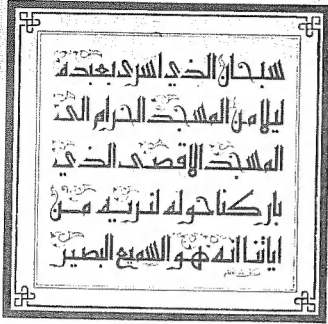 سبحان الذي اسرى بعبده
ليلا من المسجد الحرام الى
المسجد الاقصى الذي
باركنا حوله لنريه من
اياتنا انه هو السميع البصير